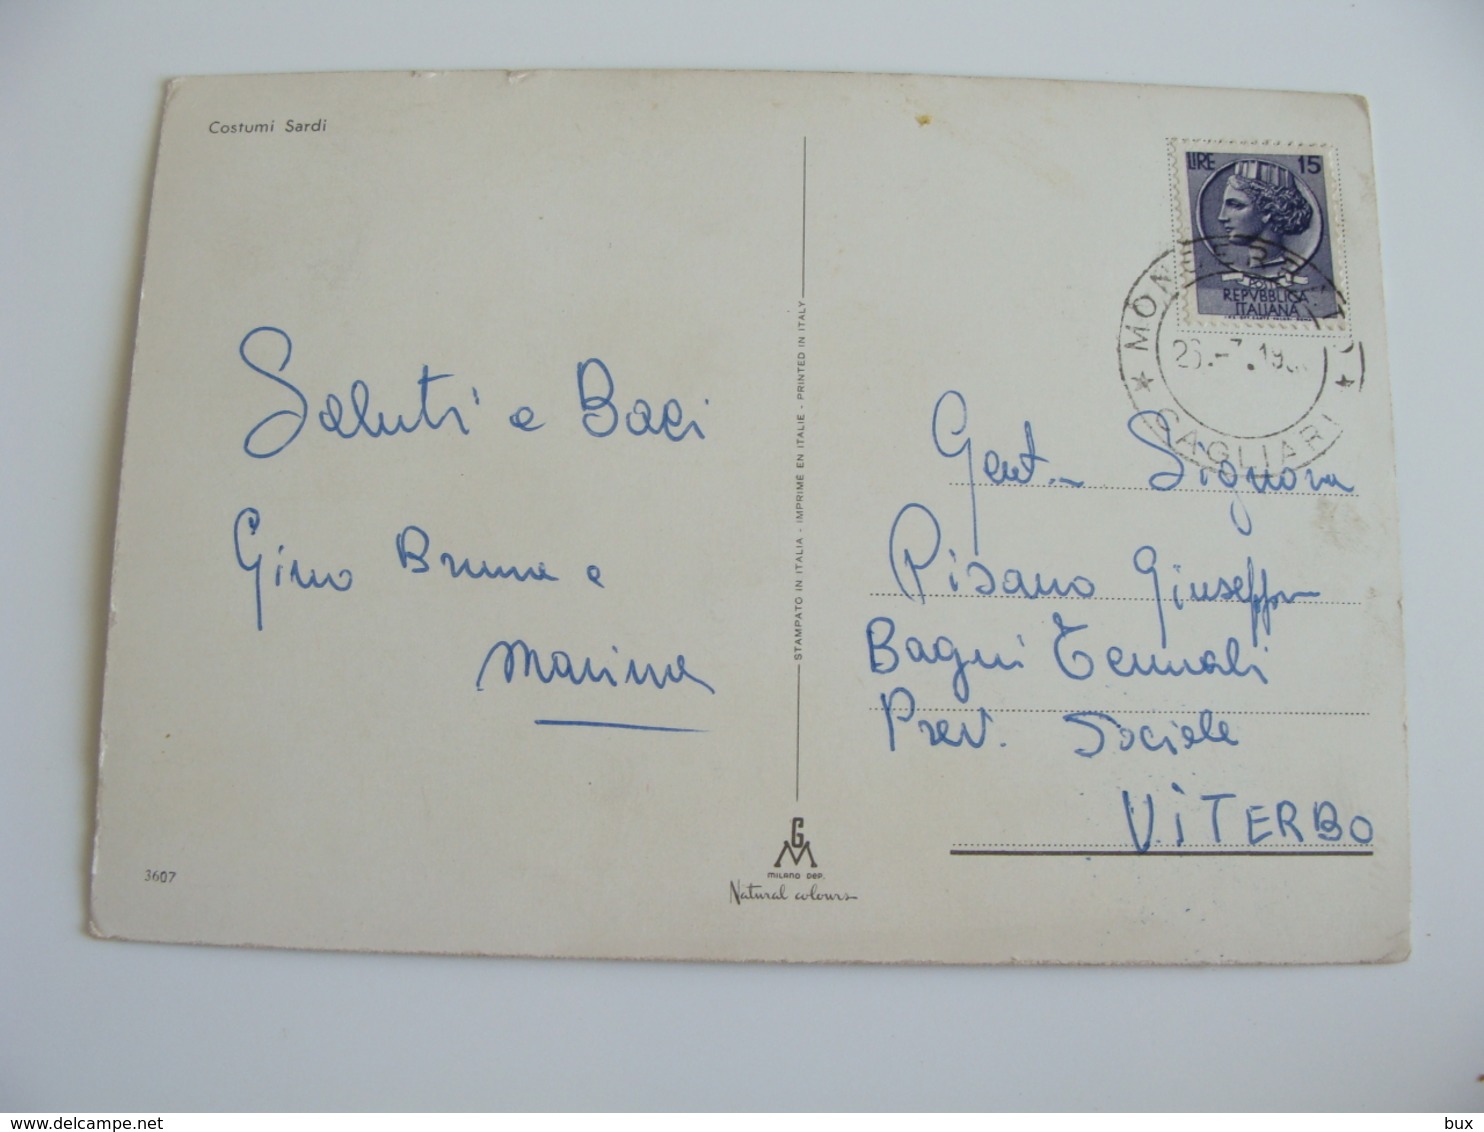 Costumi Sardi
LIRE 15
POSTE
REPVBBLICA
ITALIANA
CAGLIARI
Saluti e Baci
Gino Bruna e
Marina
STAMPATO IN ITALIA - IMPRIMÉ EN ITALIE - PRINTED IN ITALY
Gent. Signora
Pisano Giuseppa
Bagni Termali
Prev. Sociale
VITERBO
GM
MILANO DEP.
Natural colours
3607
delcampe.net
bux